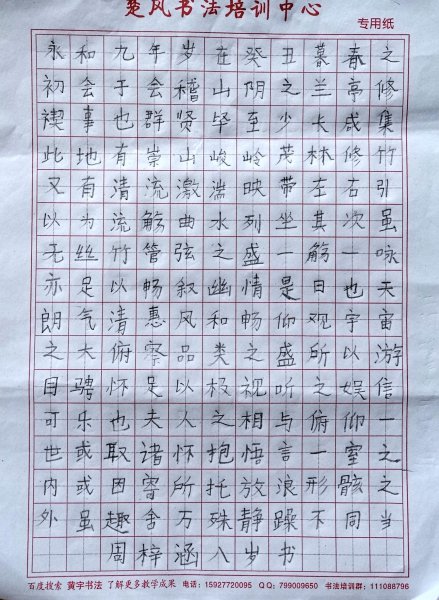 楚风书法培训中心
专用纸
永和九年岁在癸丑暮春之
初会于会稽山阴之兰亭修
禊事也群贤毕至少长咸集
此地有崇山峻岭茂林修竹
又有清流激湍映带左右引
以为流觞曲水列坐其次虽
无丝竹管弦之盛一觞一咏
亦足以畅叙幽情是日也天
朗气清惠风和畅仰观宇宙
之大俯察品类之盛所以游
目骋怀足以极视听之娱信
可乐也夫人之相与俯仰一
世或取诸怀抱悟言一室之
内或因寄所托放浪形骸之
外虽趣舍万殊静躁不同当
周梓涵八岁书
百度搜索 黄宇书法 了解更多教学成果 电话：15927720095 QQ：799009650 书法培训群：111088796